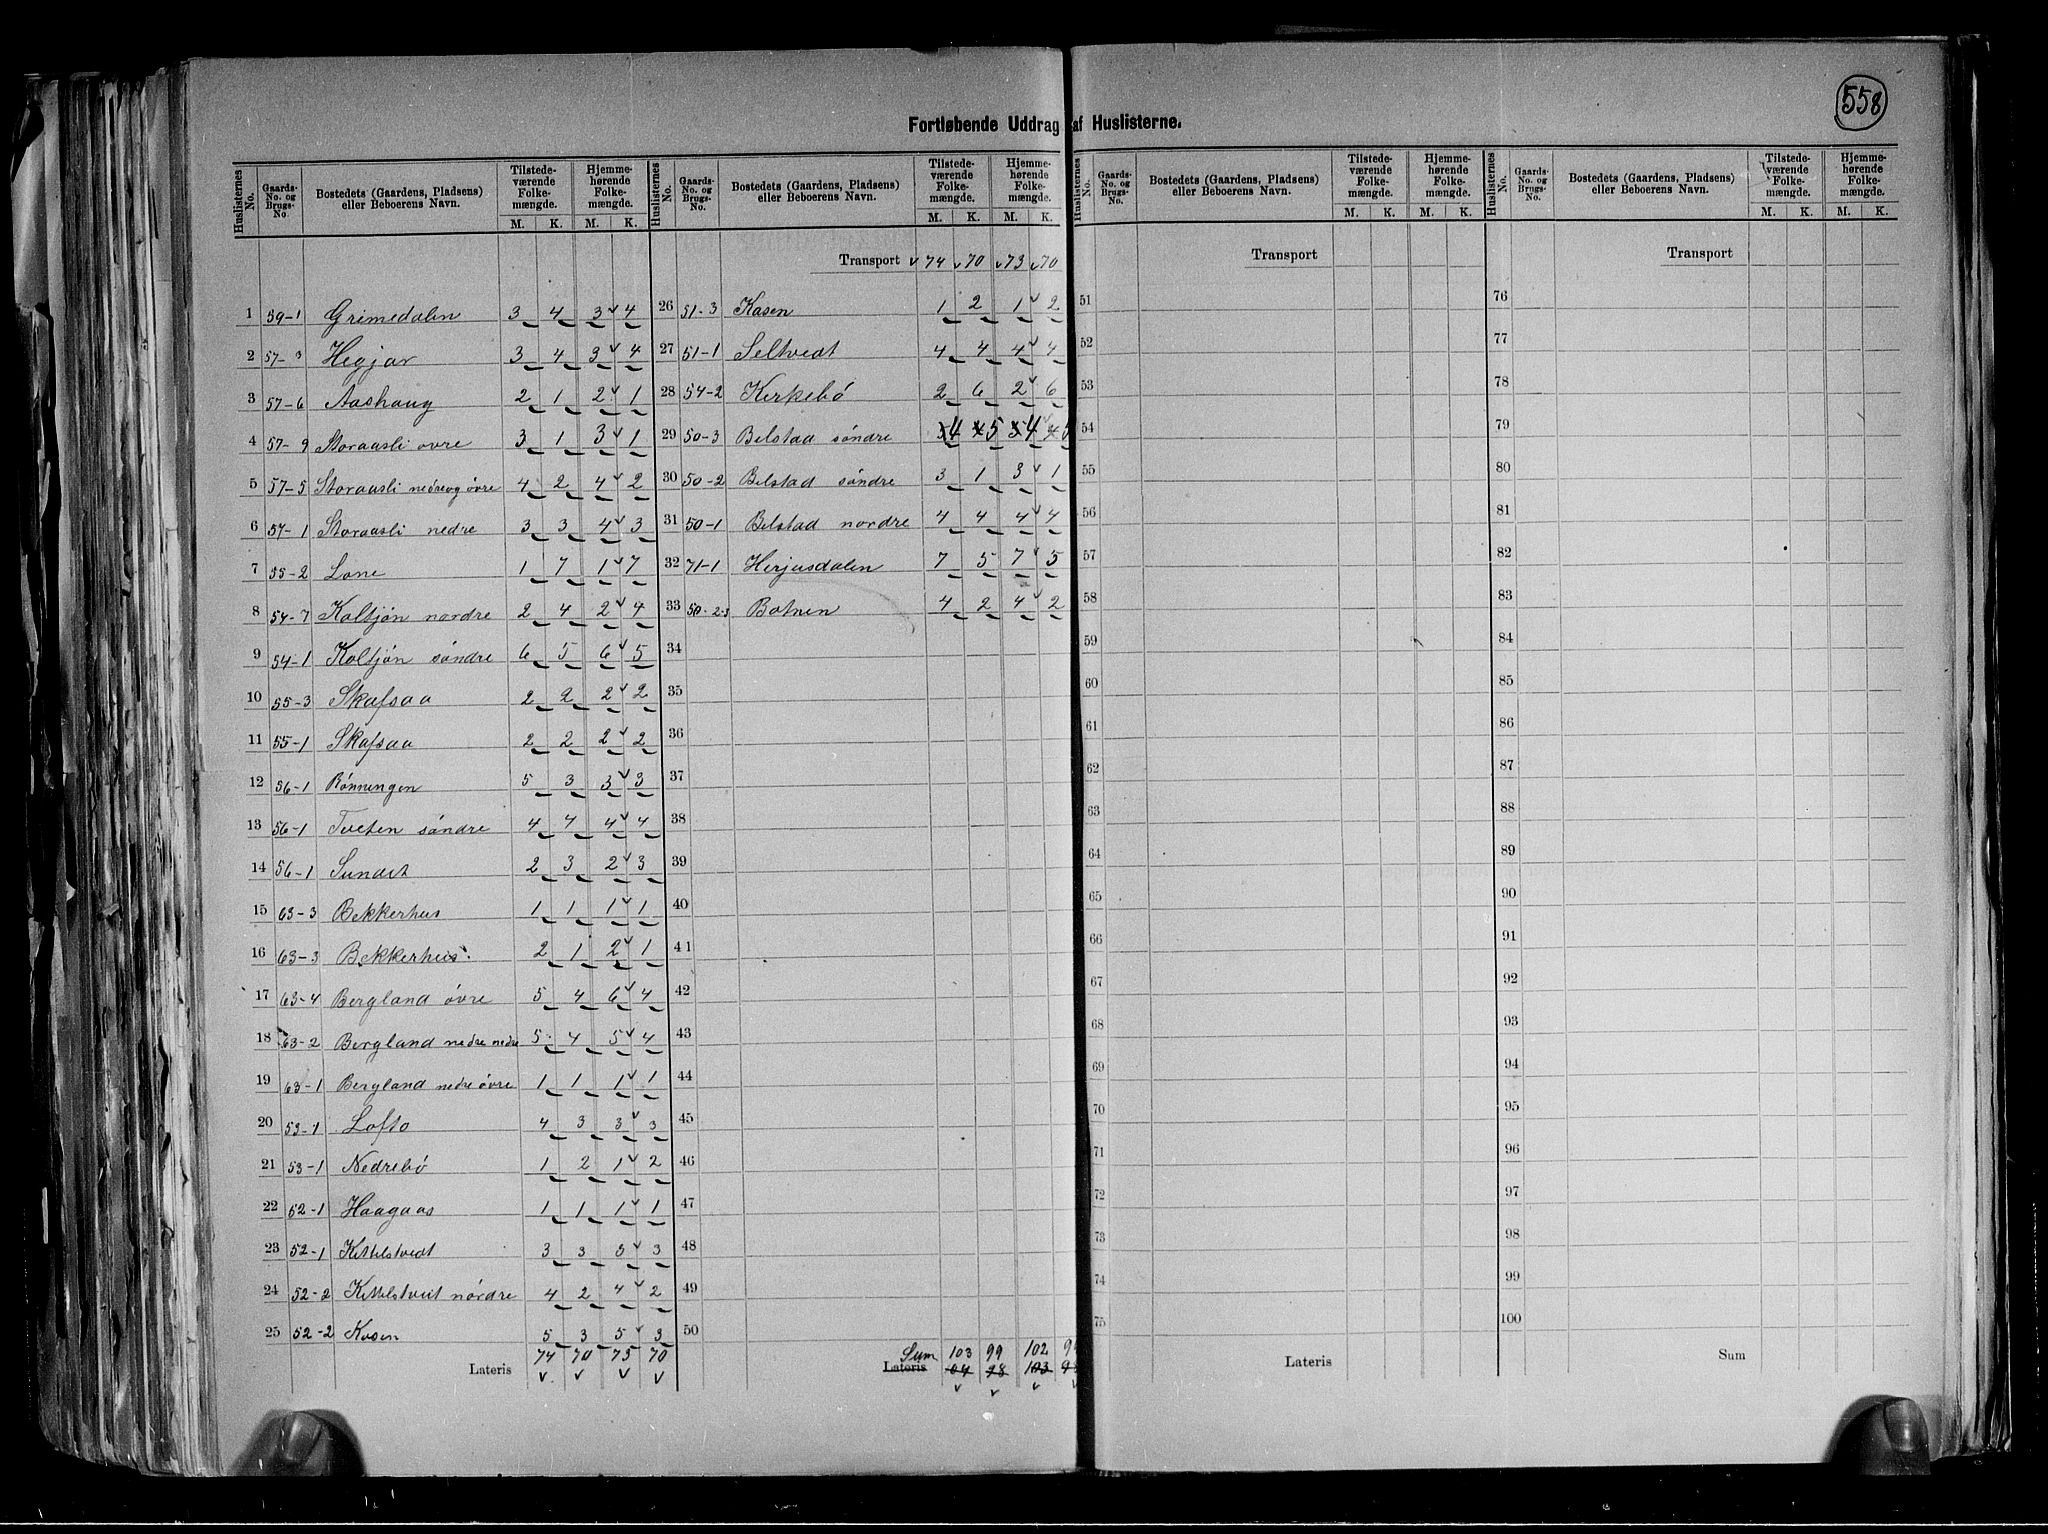 558
Fortløbende Uddrag af Huslisterne.
Huslisternes No. | Gaards-No. og Brugs-No. | Bostedets (Gaardens, Pladsens) eller Beboerens Navn. | Tilstedeværende Folkemængde. M. K. | Hjemmehørende Folkemængde. M. K.
1 59-1 Grimedalen 3 4 3 4
2 57-3 Hegjar 3 4 3 4
3 57-6 Aashaug 2 1 2 1
4 57-9 Storaasli øvre 3 1 3 1
5 57-5 Storaasli nedre og øvre 4 2 4 2
6 57-1 Storaasli nedre 3 3 4 3
7 55-2 Lone 1 7 1 7
8 54-7 Koltjøn nordre 2 4 2 4
9 54-1 Koltjøn søndre 6 5 6 5
10 55-3 Skafsaa 2 2 2 2
11 55-1 Skafsaa 2 2 2 2
12 56-1 Rønningen 5 3 3 3
13 56-1 Tveten søndre 4 4 4 4
14 56-1 Sundet 2 3 2 3
15 63-3 Bekkerhus 1 1 1 1
16 63-3 Bekkerhus 2 1 2 1
17 63-4 Bergland øvre 5 4 6 4
18 63-2 Bergland nedre nedre 5 4 5 4
19 63-1 Bergland nedre øvre 1 1 1 1
20 53-1 Lofto 4 3 3 3
21 53-1 Nedrebø 1 2 1 2
22 52-1 Haagaas 1 1 1 1
23 52-1 Kittelstvedt 3 3 3 3
24 52-2 Kittelstveit nørdre 4 2 4 2
25 52-2 Kosen 5 3 5 3
Lateris 74 70 73 70
Huslisternes No. | Gaards-No. og Brugs-No. | Bostedets (Gaardens, Pladsens) eller Beboerens Navn. | Tilstedeværende Folkemængde. M. K. | Hjemmehørende Folkemængde. M. K.
Transport 74 70 73 70
26 51-3 Kasen 1 2 1 2
27 51-1 Seltvedt 4 4 4 4
28 54-2 Kirkebø 2 6 2 6
29 50-3 Belstad søndre 4 5 4 5
30 50-2 Belstad søndre 3 1 3 1
31 50-1 Belstad nordre 4 4 4 4
32 71-1 Herjusdalen 7 5 7 5
33 50-2-3 Botnen 4 2 4 2
34
35
36
37
38
39
40
41
42
43
44
45
46
47
48
49
50
Sum 103 99 102
Lateris 98 103
Huslisternes No. | Gaards-No. og Brugs-No. | Bostedets (Gaardens, Pladsens) eller Beboerens Navn. | Tilstedeværende Folkemængde. M. K. | Hjemmehørende Folkemængde. M. K.
Transport
51
52
53
54
55
56
57
58
59
60
61
62
63
64
65
66
67
68
69
70
71
72
73
74
75
Lateris
Huslisternes No. | Gaards-No. og Brugs-No. | Bostedets (Gaardens, Pladsens) eller Beboerens Navn. | Tilstedeværende Folkemængde. M. K. | Hjemmehørende Folkemængde. M. K.
Transport
76
77
78
79
80
81
82
83
84
85
86
87
88
89
90
91
92
93
94
95
96
97
98
99
100
Sum